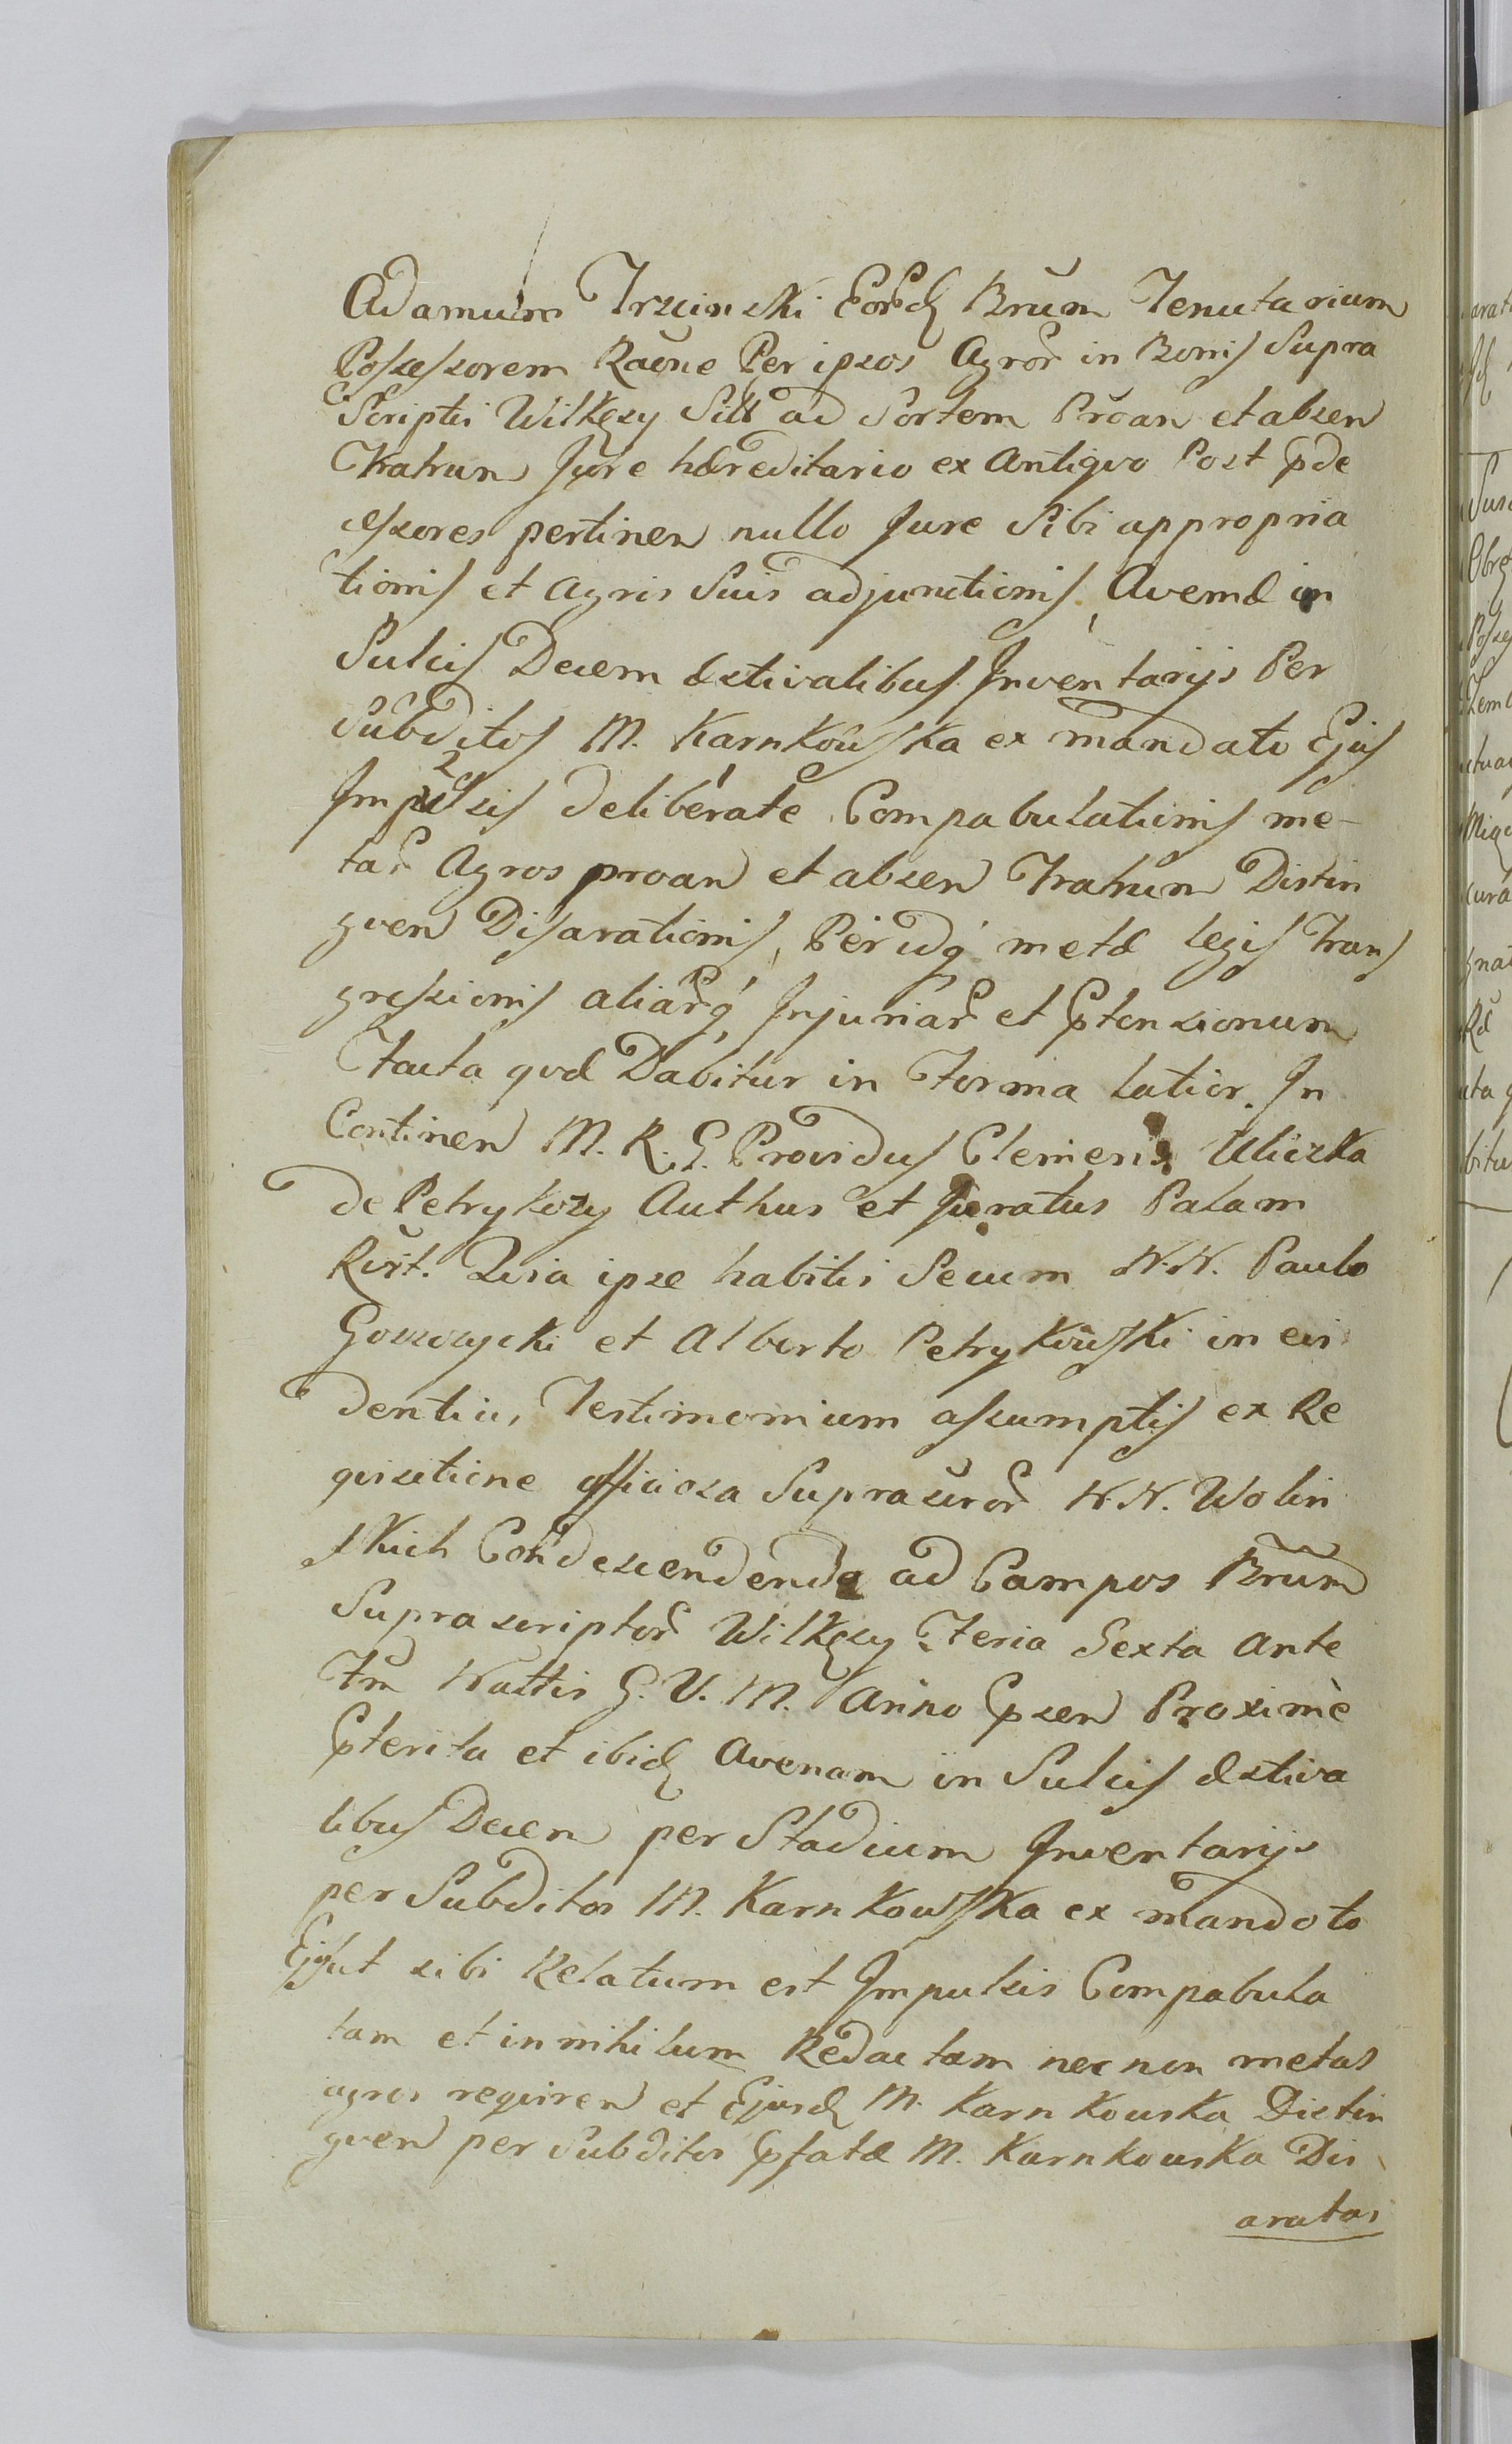 Adamum Trzcinski Eord Brum Tenutarium
Possessorem Raone Per ipsos Agror in Bonis Supra
Scriptis Wilkęsy Sitt ad Sortem Proan et absen
Trahen Jure hæreditario ex Antiqvo Post præde
cessores pertinen nullo Jure Sibi appropria
tionis et Agris Suis adjunctionis, Avenæ in
Sulcis Decem æstivalibus Inventarijs Per
Subditos M. Karnkowska ex mandato Ejus
Impulsis deliberate Compabulationis me-
tar Agros proan et absen Trahen Distin
gven Disarationis, Per idq metæ legis Trans
gressionis aliarq Injuriar et Prætensionum
Facta qvæ Dabitur in Forma latior. In
Continen M. R. G. Providus Clemens Uliczka
de Petrykozy Authus et Juratus Palam
Rivit. Quia ipse habitis Secum N.N. Paulo
Goszczycki et Alberto Petrykowski in evi
dentius Testimonium assumptis ex Re
qvisitione officiosa Suprascror N.N. Wolin
skich Condescendendo ad Campos Brum
Suprascriptor Wilkęsy Feria Sexta Ante
Fm Nattis G. V. M. Anno Præsen Proxime
Præterita et ibid Avenam in Sulcis æstiva
libus Decem per Stadium Inventarijs
per Subditos M. Karnkowska ex mandato
Ejus ut sibi Relatum est Impulsis Compabula
tam et in nihilum Redactam nec non metas
agros reqviren et Ejusd M. Karnkowska Distin
gven per Subditos Præfatæ M. Karnkowska Dis
aratas